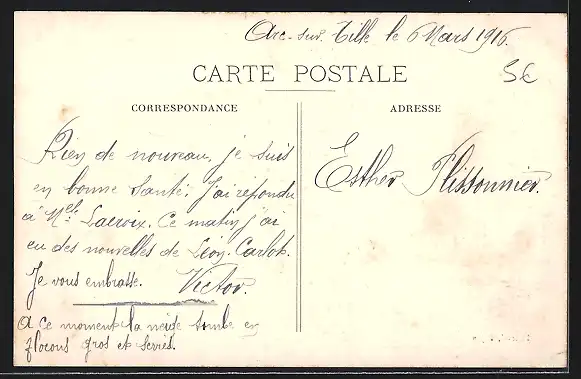 Arc-sur-Tille le 6 Mars 1916.
5€
CARTE POSTALE
CORRESPONDANCE
ADRESSE
Rien de nouveau, je suis
en bonne santé. J'ai répondu
à Mel: Lacroix. Ce matin j'ai
eu des nouvelles de Léon. Carlot.
Je vous embrasse. Victor.
A ce moment la neige tombe en
flocons gros et serrés.
Esther Plissonnier.